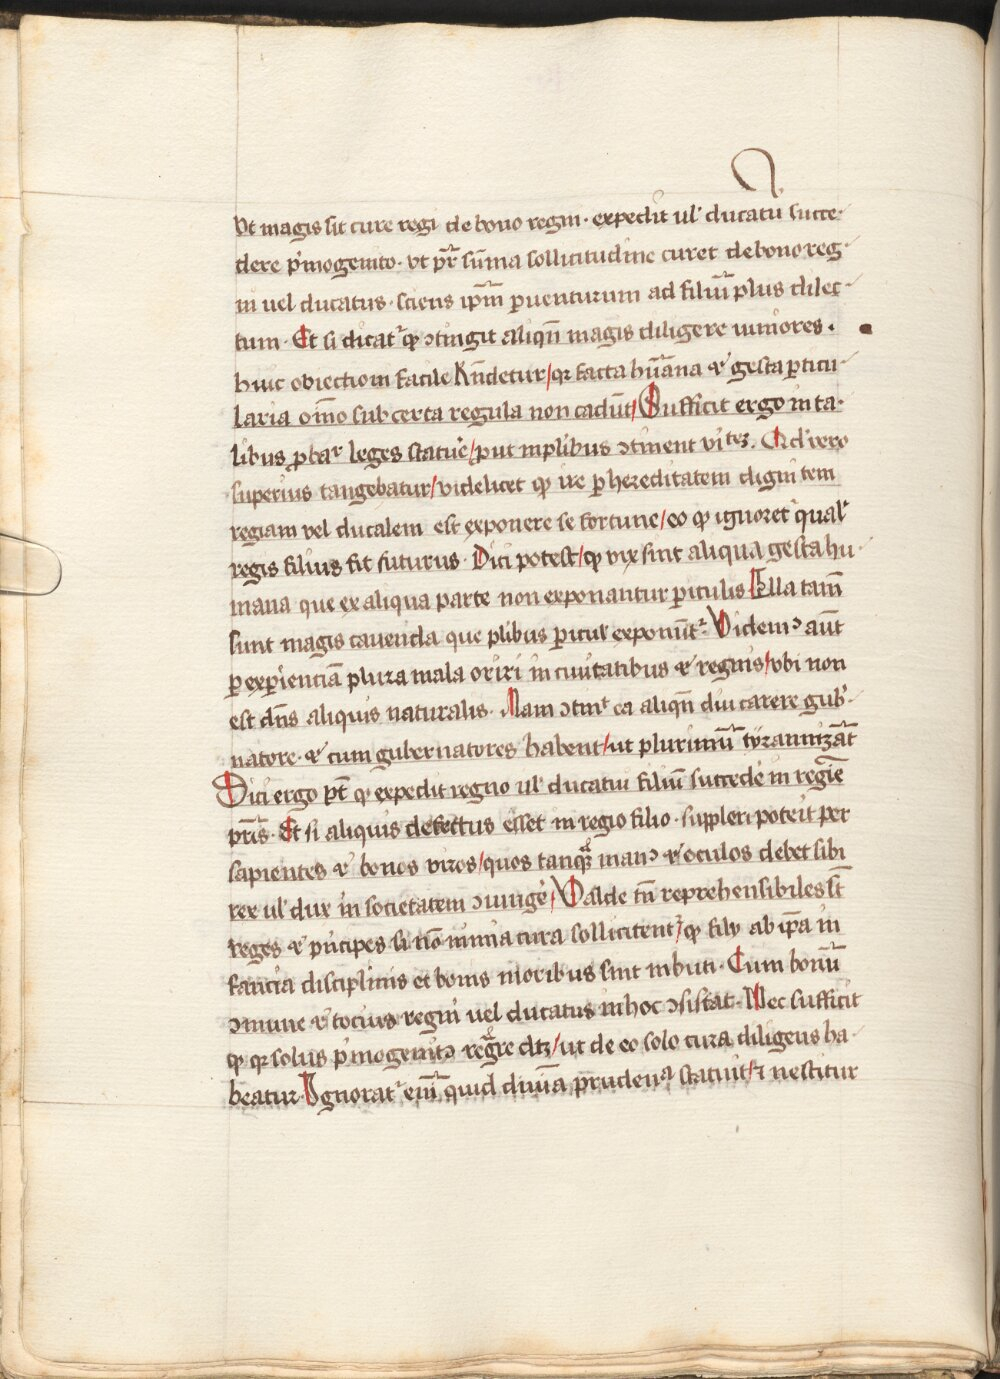 Vt magis sit cure regi de bono regni · expedit ul' ducatu succe-
dere p̄mogenito · vt pr̄ sūma sollicitudine curet de bono reg-
ni uel ducatus · sciens ip̄m ꝑuenturum ad filiū plus dilec-
tum · Et si dicat᷑ ꝙ ↄtingit aliqn̄ magis diligere iuniores ·
huic obiectioni facile Rn̄detur / qꝛ facta hūana ⁊ gesta ꝑticu-
laria om̄o sub certa regula non cadūt / Sufficit ergo in ta-
libus ꝓbar leges statue᷑ / ꝓut in plibus ↄtinent vitez. Ad vero
superius tangebatur / videlicet ꝙ ire ꝑ hereditatem dignitem
regiam vel ducalem est exponere se fortune / eo ꝙ ignoret᷑ qual'
regis filius sit futurus · Dici potest / ꝙ vix sint aliqua gesta hu-
mana que ex aliqua parte non exponantur ꝑiculis Illa tam̄
sunt magis cauenda que plibus ꝑicul' exponūt᷑ · Videmꝰ aūt
ꝑ exꝑienciā plura mala oriri in ciuitatibus ⁊ regnis / vbi non
est dn̄s aliquis naturalis · Nam ↄtin᷑ ea aliqn̄ diu carere gub'-
natore · ⁊ cum gubernatores habent / ut plurimū tyrannizāt
Dici ergo pt̄ ꝙ expedit regno ul' ducatui filiū succede᷑ in regiē
pr̄is · Et si aliquis defectus esset in regio filio · suppleri poterit per
sapientes ⁊ bonos viros / quos tanqꝫ manꝰ ⁊ oculos debet sibi
rex ul' dux in societatem ↄiunge᷑ / Valde tn̄ reprehensibiles st̄
reges ⁊ pn̄cipes si nō nimia cura sollicitent᷑ / ꝙ filij ab ip̄a in
fancia disciplinis et bonis moribus sint inbuti · Cum bonū
ↄmune ⁊ tocius regni uel ducatus in hoc ↄsistat · Nec sufficit
ꝙ qꝛ solus p̄mogenitꝰ reg̃re dꝫ / ut de eo solo cura diligens ha-
beatur · Ignorat᷑ em̄ quid diuīa prudenᵃ statuit / ⁊ nescitur